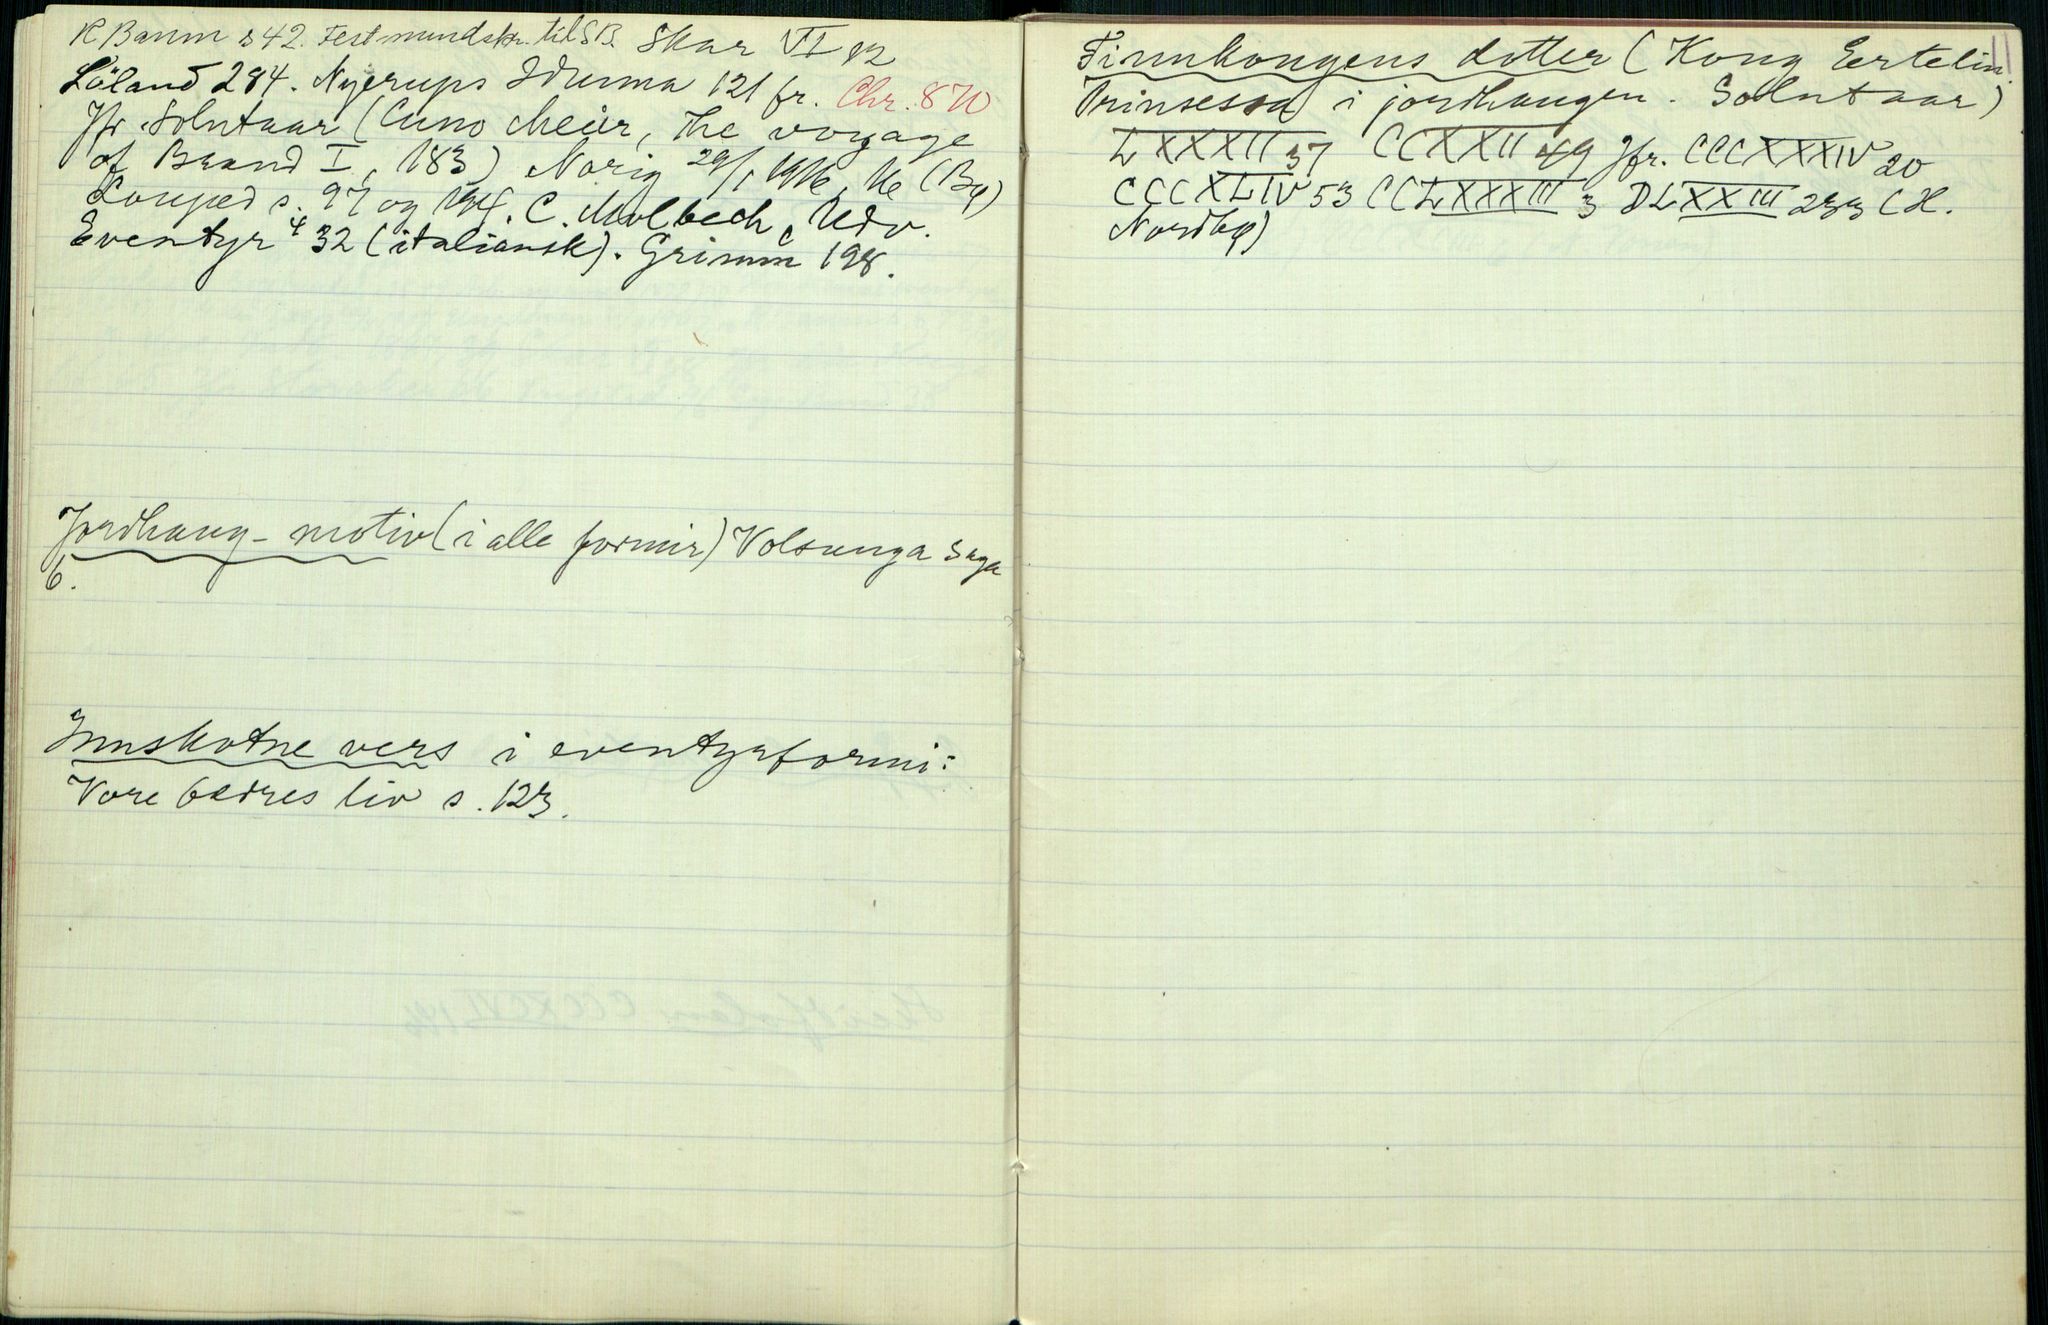 R Baum s 42. Festmundskr. til SB. Skar VI 12
Løland 284. Nyerups Idunna 121 fr. Chr. 870
Jfr Solntaar (Cuno Meier, The voyage
of Brand I, 183) Norig 29/1 1916, 16 (By)
s. 97 og 194. C. Molbech, Udv.
Eventyr⁴ 32 (italiensk). Grimm 198.
Jordhaug-motiv (i alle formir) Volsunga saga
6.
Innskotne vers i eventyrformi:
Vore fædres liv s. 123.
11
Finnkongens dotter (Kong Ertelin.
Prinsessa i jordhaugen. Solntaar)
LXXXII 37 CCXXII 49 Jfr. CCCXXXIV 20
CCCXLIV 53 CCLXXXIII 3 DLXXIII 233 (H.
Nordbø)